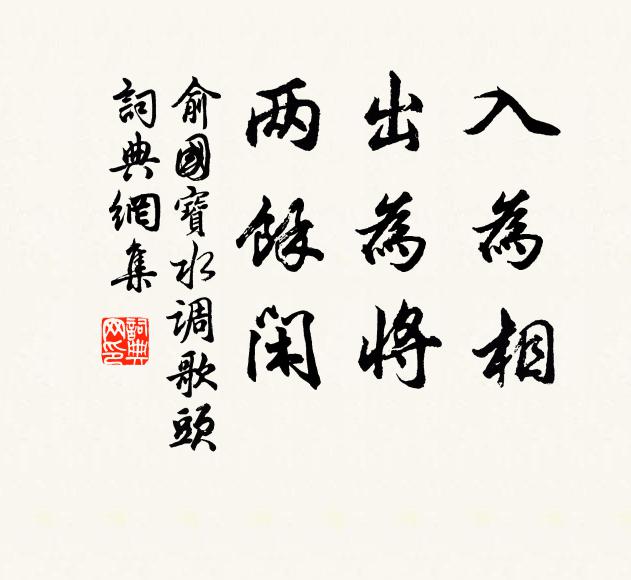 入為相
出為將
两餘閑
俞國寶水调歌頭
詞典網集
詞典
网印